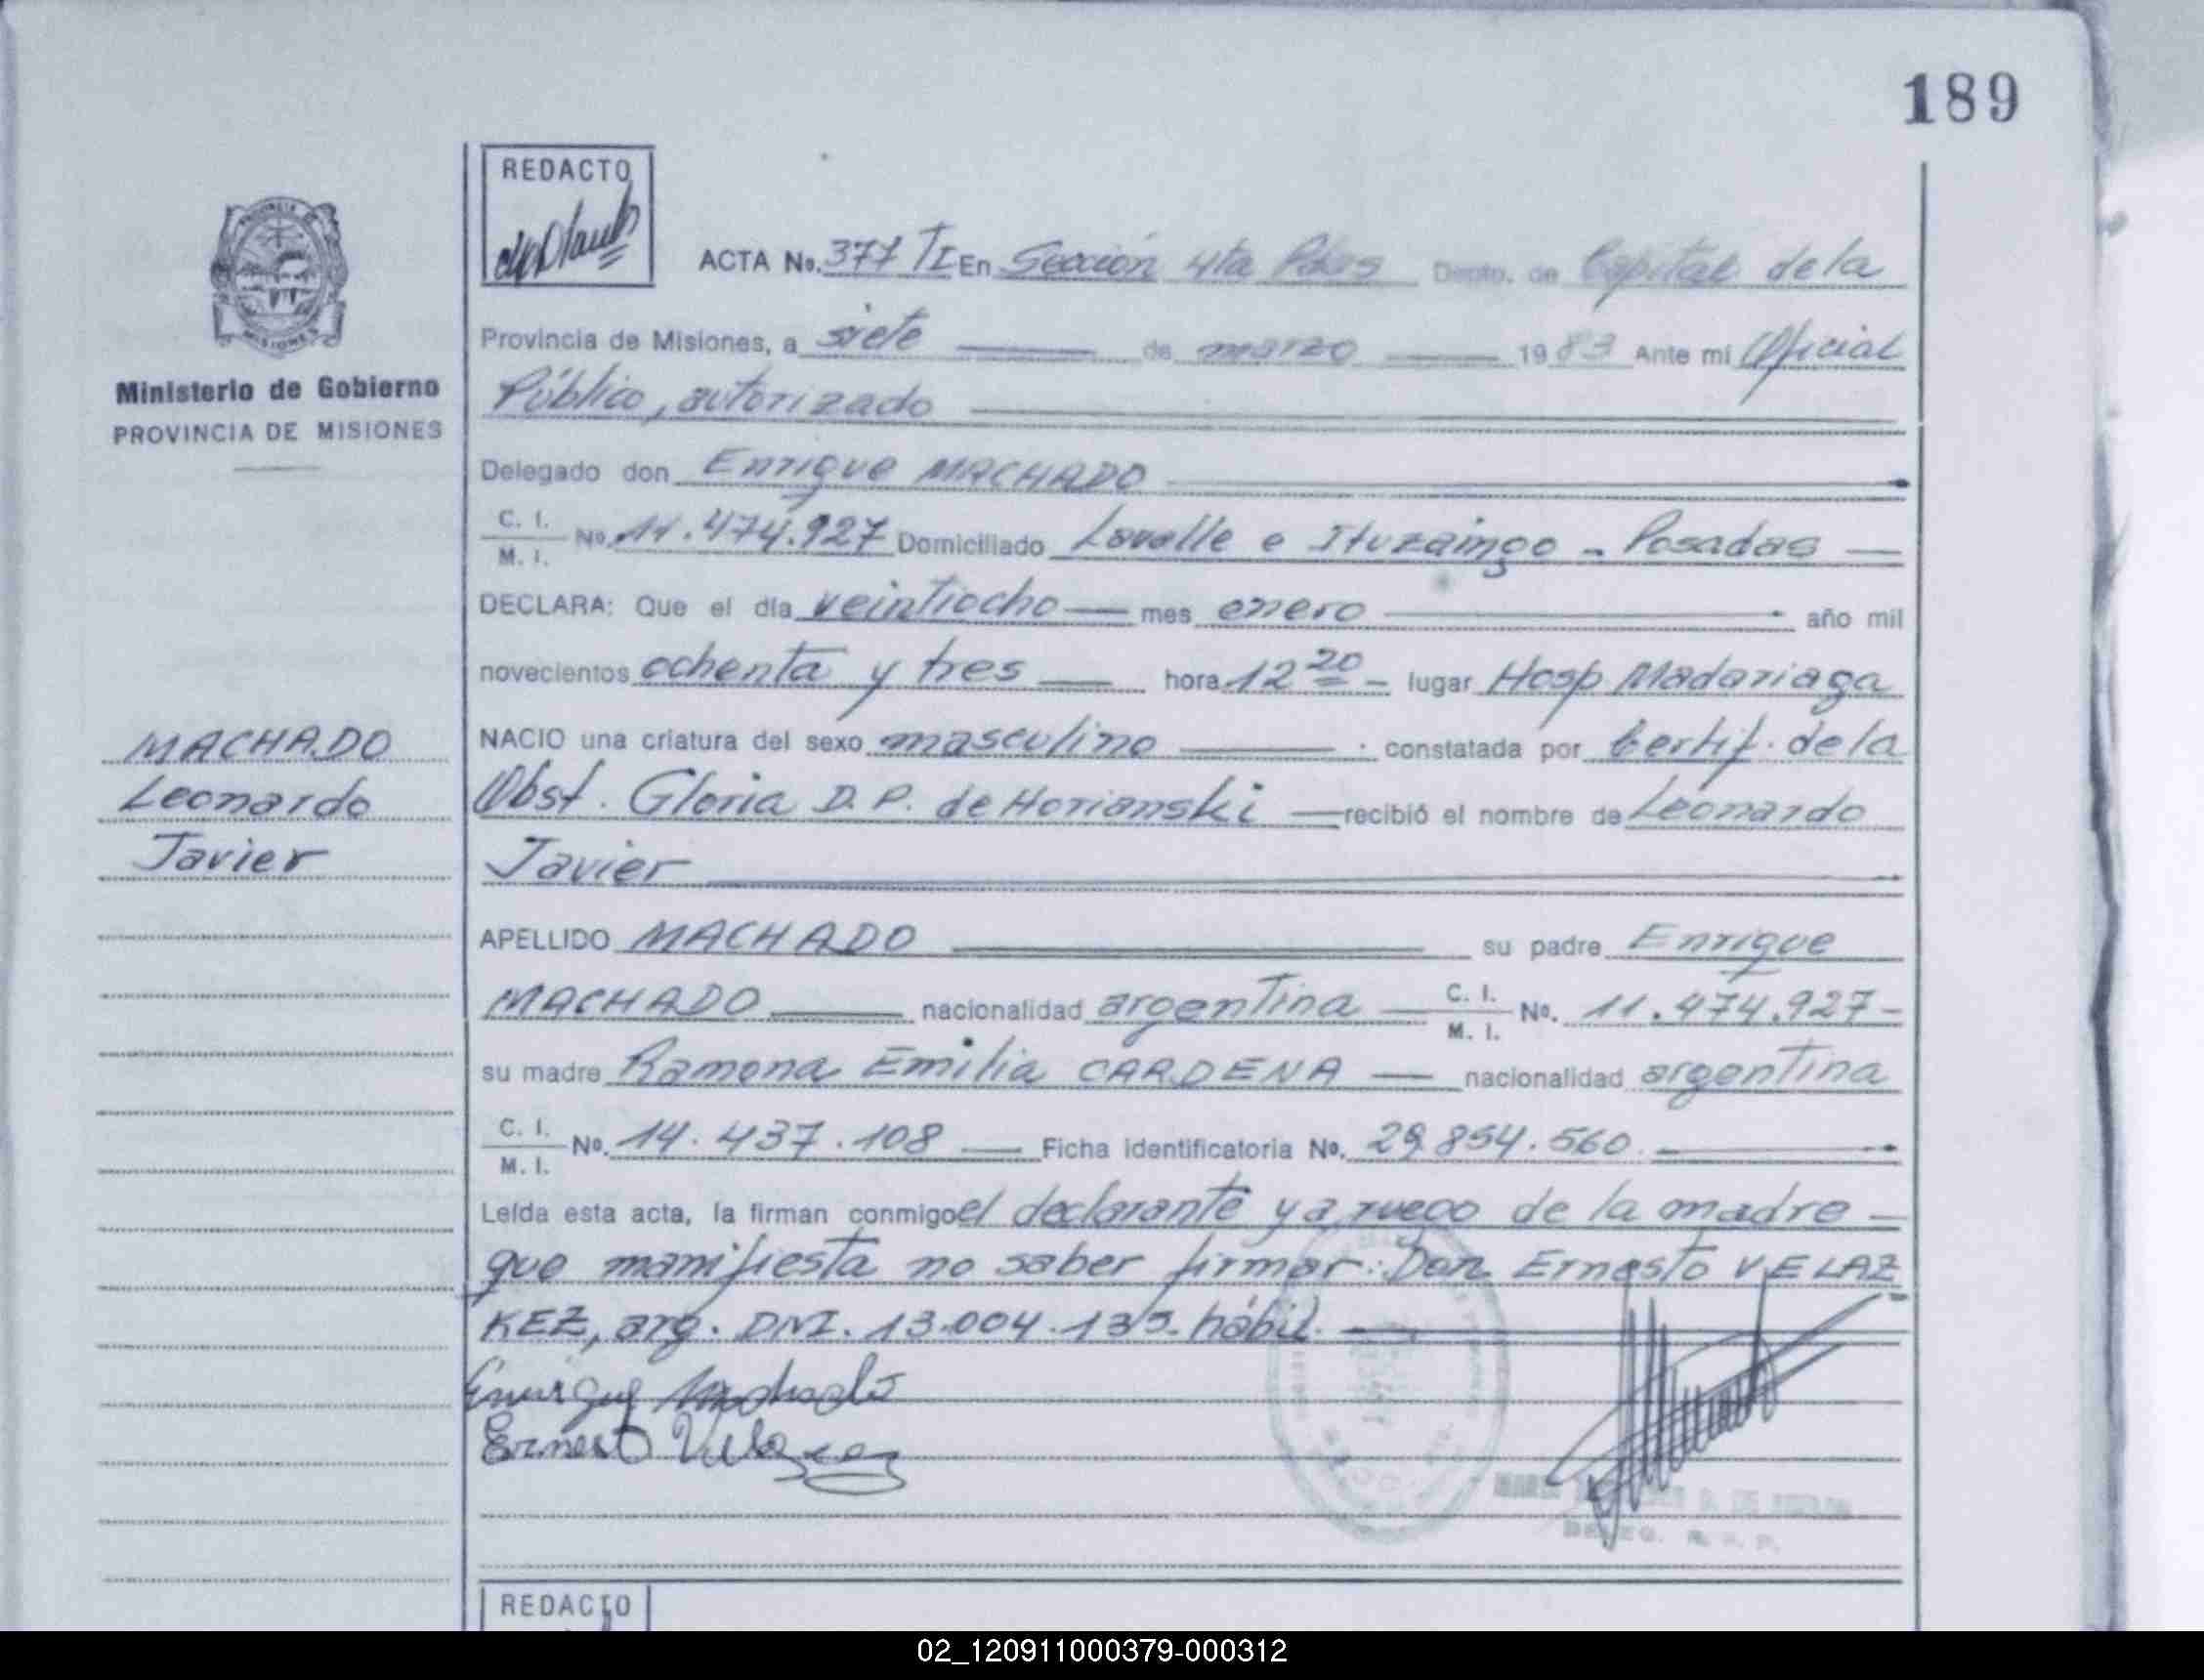 189
REDACTO
ACTA No. 377 TI En Sección 4ta Pdas Depto. de Capital de la
Provincia de Misiones, a siete de marzo 1983 Ante mi Oficial
Público, autorizado
Ministerio de Gobierno
PROVINCIA DE MISIONES
Delegado don Enrique MACHADO
C. I. M. I. No. 11.474.927 Domiciliado Lavalle e Ituzaingo - Posadas
DECLARA: Que el día veintiocho mes enero año mil
novecientos ochenta y tres hora 12 20 - lugar Hosp Madariaga
MACHADO
Leonardo
Javier
NACIO una criatura del sexo masculino constatada por Certif. de la
Obst. Gloria D. P. de Horianski recibió el nombre de Leonardo
Javier
APELLIDO MACHADO su padre Enrique
MACHADO nacionalidad argentina C. I. M. I. No. 11.474.927-
su madre Ramona Emilia CARDENA nacionalidad argentina
C. I. M. I. No. 14.437.108 Ficha identificatoria No. 29.854.560
Leída esta acta, la firman conmigo el declarante y a ruego de la madre
que manifiesta no saber firmar: Don Ernesto VELAZ
KEZ, arg. DNI. 13.004.135. hábil.
Enrique Machado
Ernesto Velazkez
REDACTO
02_120911000379-000312